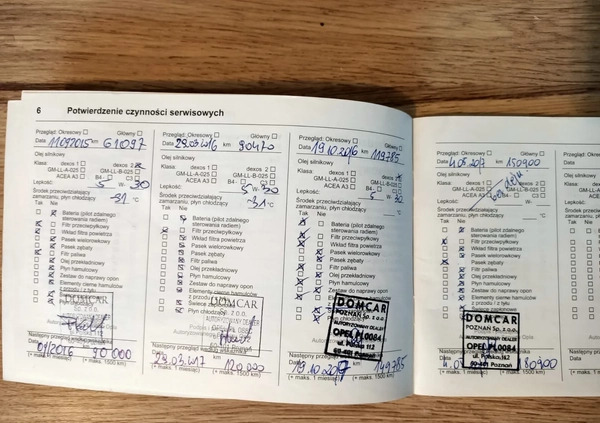 6 Potwierdzenie czynności serwisowych
Przegląd: Okresowy Główny
Data 11092015 km 61097
Olej silnikowy
Klasa: dexos 1 dexos 2
GM-LL-A-025 GM-LL-B-025
ACEA A3 B4 C3
Lepkość: 5 W- 30
Środek przeciwdziałający
zamarzaniu, płyn chłodzący -31 °C
Tak Nie
Bateria (pilot zdalnego
sterowania radiem)
Filtr przeciwpyłkowy
Wkład filtra powietrza
Pasek wielorowkowy
Pasek zębaty
Filtr paliwa
Olej przekładniowy
Płyn hamulcowy
Zestaw do naprawy opon
Elementy cierne hamulców
z przodu / z tyłu
DOMCAR
Sp. z o.o.
Następny przegląd
09/2016 90 000
(+ maks. 1 miesiąc) (+ maks. 1500 km)
Przegląd: Okresowy Główny
Data 29.03.2016 km 90470
Olej silnikowy
Klasa: dexos 1 dexos 2
GM-LL-A-025 GM-LL-B-025
ACEA A3 B4 C3
Lepkość: 5 W- 30
Środek przeciwdziałający
zamarzaniu, płyn chłodzący -31 °C
Tak Nie
Bateria (pilot zdalnego
sterowania radiem)
Filtr przeciwpyłkowy
Wkład filtra powietrza
Pasek wielorowkowy
Pasek zębaty
Filtr paliwa
Olej przekładniowy
Płyn hamulcowy
Zestaw do naprawy opon
Elementy cierne hamulców
z przodu / z tyłu
Płyn chłodzący
DOMCAR
Sp. z o.o.
AUTORYZOWANY DEALER
Następny przegląd
29.03.2017 120.000
(+ maks. 1 miesiąc) (+ maks. 1500 km)
Przegląd: Okresowy Główny
Data 19.10.2016 km 119785
Olej silnikowy
Klasa: dexos 1 dexos 2
GM-LL-A-025 GM-LL-B-025
ACEA A3 B4 C3
Lepkość: 5 W- 30
Środek przeciwdziałający
zamarzaniu, płyn chłodzący °C
Tak Nie
Bateria (pilot zdalnego
sterowania radiem)
Filtr przeciwpyłkowy
Wkład filtra powietrza
Pasek wielorowkowy
Pasek zębaty
Filtr paliwa
Olej przekładniowy
Płyn hamulcowy
Zestaw do naprawy opon
Elementy cierne hamulców
z przodu / z tyłu
DOMCAR
POZNAŃ Sp. z o.o.
AUTORYZOWANY DEALER
OPEL PL0084
ul. Polska 112
60-401 Poznań
Następny przegląd
19.10.2017 149785
(+ maks. 1 miesiąc) (+ maks. 1500 km)
Przegląd: Okresowy Główny
Data km 150900
Olej silnikowy
Klasa: dexos 1 dexos 2
GM-LL-A-025 GM-LL-B-025
ACEA A3 B4 C3
Lepkość: W-
Środek przeciwdziałający
zamarzaniu, płyn chłodzący °C
Tak Nie
Bateria (pilot zdalnego
sterowania radiem)
Filtr przeciwpyłkowy
Wkład filtra powietrza
Pasek wielorowkowy
Pasek zębaty
Filtr paliwa
Olej przekładniowy
Płyn hamulcowy
Zestaw do naprawy opon
Elementy cierne hamulców
z przodu / z tyłu
DOMCAR
POZNAŃ Sp. z o.o.
AUTORYZOWANY DEALER
OPEL PL0084
60-401 Poznań
Następny 180900
(+ maks. 1 miesiąc) (+ maks. 1500 km)
Przegląd:
Data
Olej silnikowy
Klasa:
Lepkość:
Środek
zamarzaniu
Tak Nie
Następny
(+ maks.